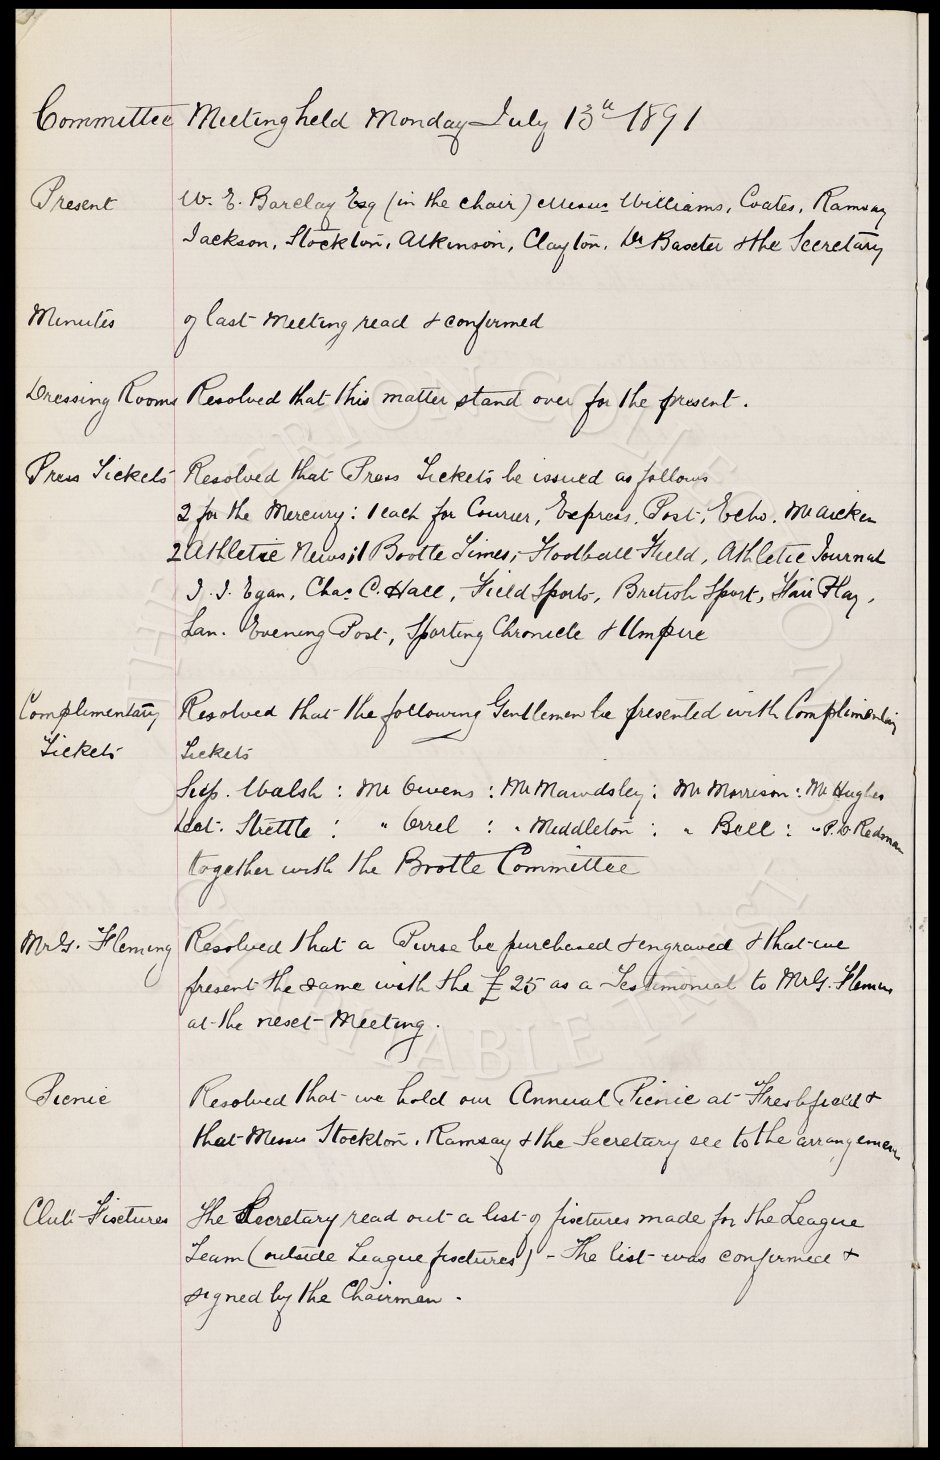 Committee Meeting held Monday July 13th 1891
Present W. E. Barclay Esq (in the chair) Messrs Williams, Coates, Ramsay
Jackson, Stockton, Atkinson, Clayton, Dr Baxter & the Secretary
Minutes of last Meeting read & confirmed
Dressing Rooms Resolved that this matter stand over for the present.
Press Tickets Resolved that Press Tickets be issued as follows
2 for the Mercury: 1 each for Courier, Express, Post, Echo,
2 Athletic News; 1 Bootle Times, Football Field, Athletic Journal
J. J. Egan, Chas C. Hall, Field Sports, British Sport, Fair Play,
Lan. Evening Post, Sporting Chronicle & Umpire
Complimentary Resolved that the following Gentlemen be presented with Complimentary
Tickets Tickets
Sup. Walsh: Mr Owens: Mr Mawdsley: Mr Morrison: Mr Hughes
Strettle: " Orrel: " Middleton: " Bell: " P. D Redman
together with the Bootle Committee
Mr G. Fleming Resolved that a Purse be purchased & engraved & that we
present the same with the £25 as a Testimonial to Mr G. Fleming
at the next Meeting.
Picnic Resolved that we hold our Annual Picnic at Freshfield &
that Messrs Stockton, Ramsay & the Secretary see to the arrangements
Club Fixtures The Secretary read out a list of fixtures made for the League
Team (outside League fixtures) - The list was confirmed &
signed by the Chairman.